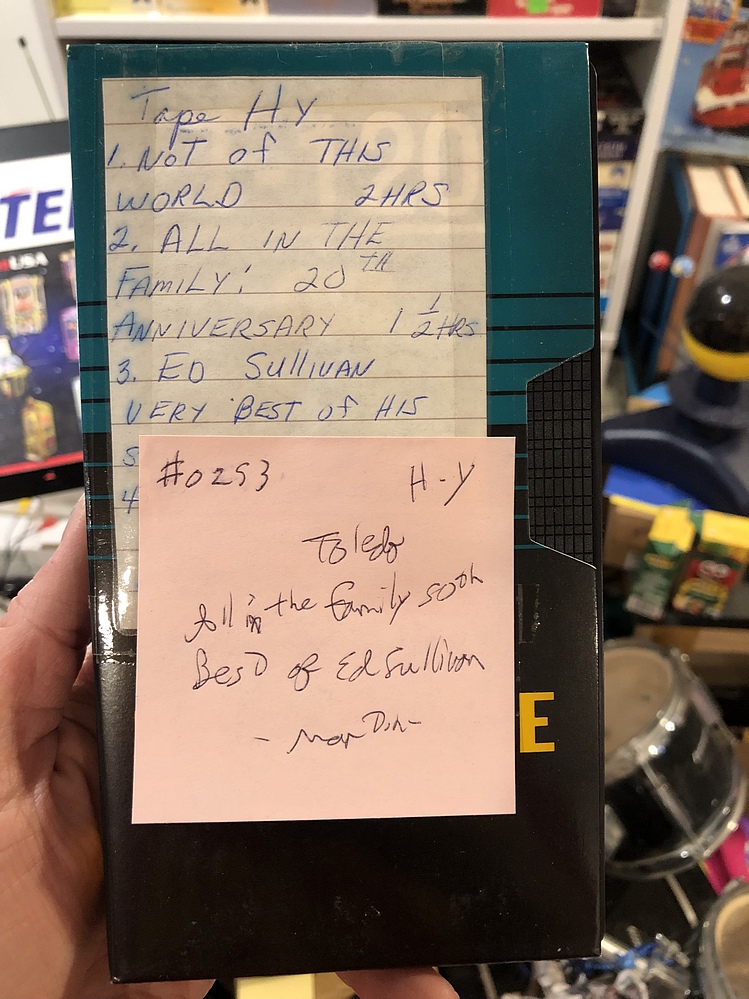 Tape H Y
1. NOT of THIS
WORLD 2HRS
2. ALL IN THE
FAMILY: 20TH
ANNIVERSARY 1 1/2 HRS
3. ED SULLIVAN
VERY BEST of HIS
S
4
#0253 H-Y
Toledo
All in the family 50th
Best of Ed Sullivan
- Martin -
E
TE
USA